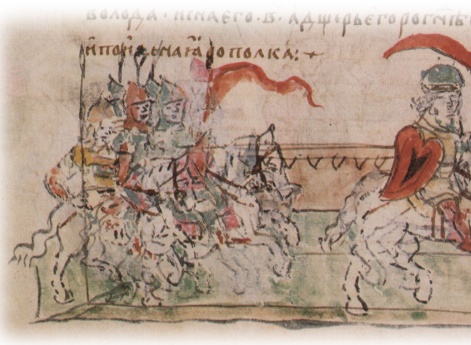 волода · и сна его · в · а дщерь его рогнѣ
и поиде на ꙗрополка : +